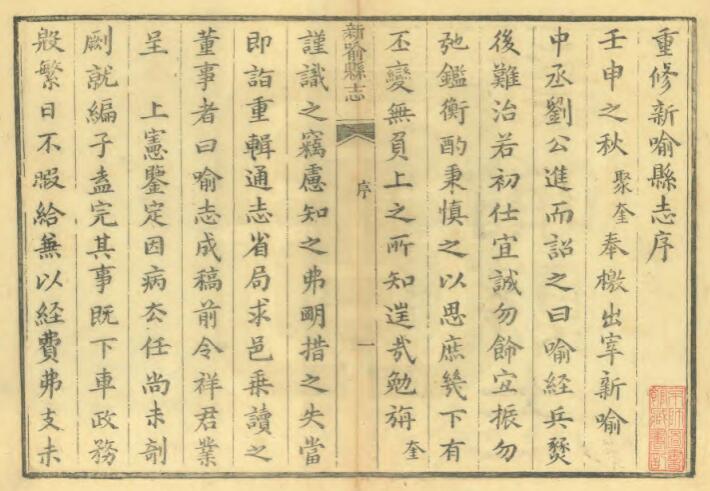 重修新喻縣志序
壬申之秋聚奎奉檄出宰新喻
中丞劉公進而詔之曰喻經兵燹
後難治若初仕宜誠勿餙宜振勿
弛鑑衡酌秉慎之以思庶幾下有
丕變無負上之所知逞哉勉旃奎
新喻縣志
序
一
謹識之竊慮知之弗明措之失當
即詣重輯通志省局求邑乗讀之
董事者曰喻志成稿前令祥君業
呈 上憲鑒定因病厺任尚未剞
劂就編子盍完其事既下車政務
殷繁日不暇給無以経費弗支未